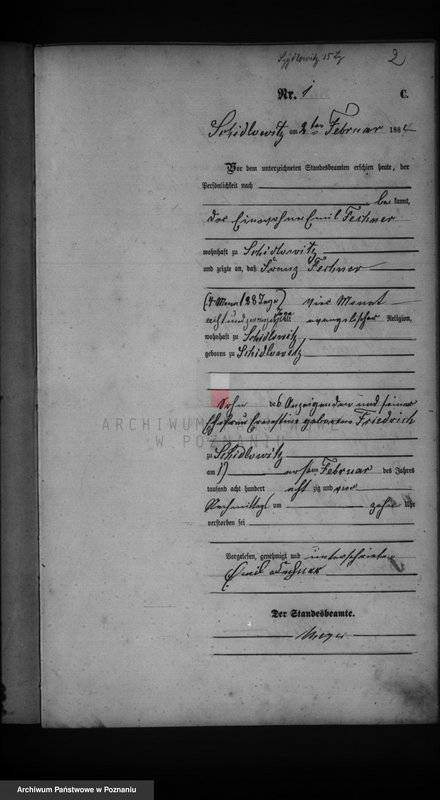 Szydlowitz
2
Nr. 1 C.
Schidlowitz am 2ten Februar 1884
Vor dem unterzeichneten Standesbeamten erschien heute, der
Persönlichkeit nach
be kannt,
der Einwohner Emil Fechner
wohnhaft zu Schidlowitz
und zeigte an, daß Franz Fechner
(4 Mon. 28 Tage) vier Monat
acht und zwanzig Tage evangelischer Religion,
wohnhaft zu Schidlowitz
geboren zu Schidlowitz
Sohn des Anzeigenden und seiner
Ehefrau Ernestine geborene Friedrich
ARCHIWUM PAŃSTWOWE
W POZNANIU
zu Schidlowitz
am 1) ersten Februar des Jahres
tausend acht hundert acht zig und vier
Nachmittags um zehn Uhr
verstorben sei
Vorgelesen, genehmigt und unterschrieben
Emil Fechner
Der Standesbeamte.
Meyer
Archiwum Państwowe w Poznaniu